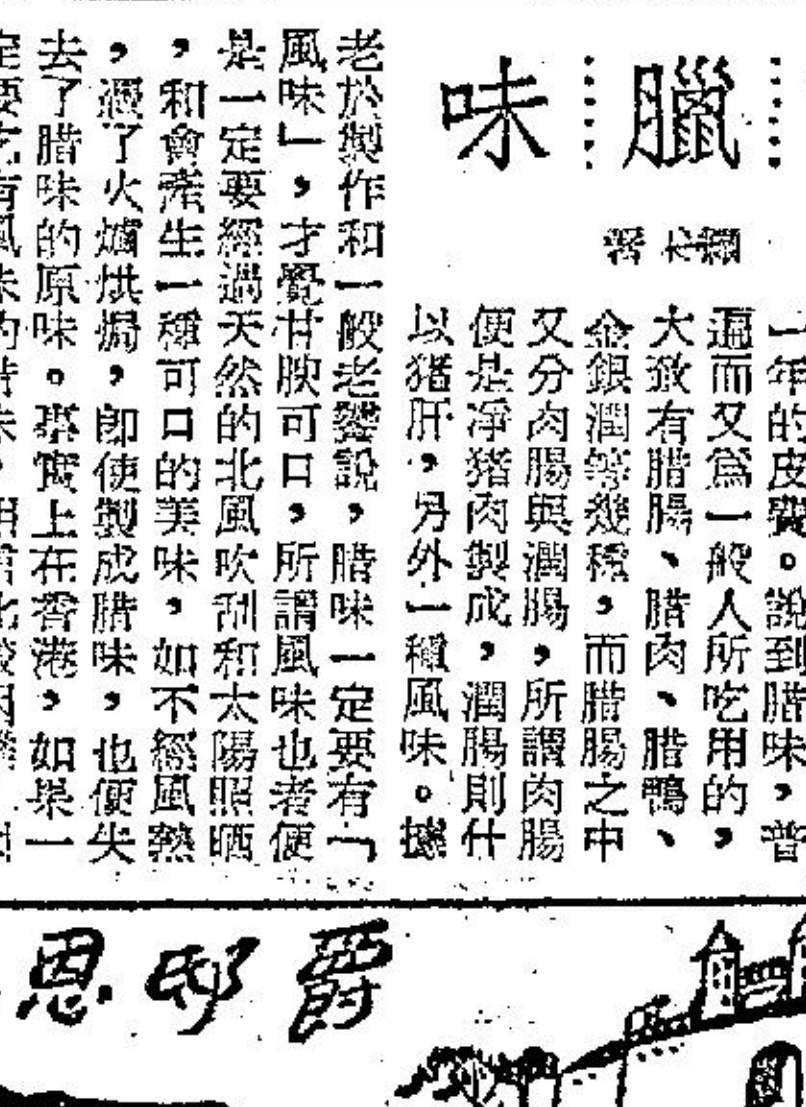 臘味
一年的皮費。說到腊味，普
遍而又爲一般人所吃用的，
大致有腊腸、腊肉、腊鴨、
金銀潤等幾種，而腊腸之中
又分肉腸與潤腸，所謂肉腸
便是淨猪肉製成，潤腸則什
以猪肝，另外一種風味。據
老於製作和一般老饕說，腊味一定要有「
風味」，才覺甘腴可口，所謂風味也者便
是一定要經過天然的北風吹刮和太陽照晒
，和會產生一種可口的美味，如不經風熱
，過了火爐烘焗，即使製成腊味，也便失
去了腊味的原味。事實上在香港，如果一
定要吃有風味的腊味，
爵邸恩